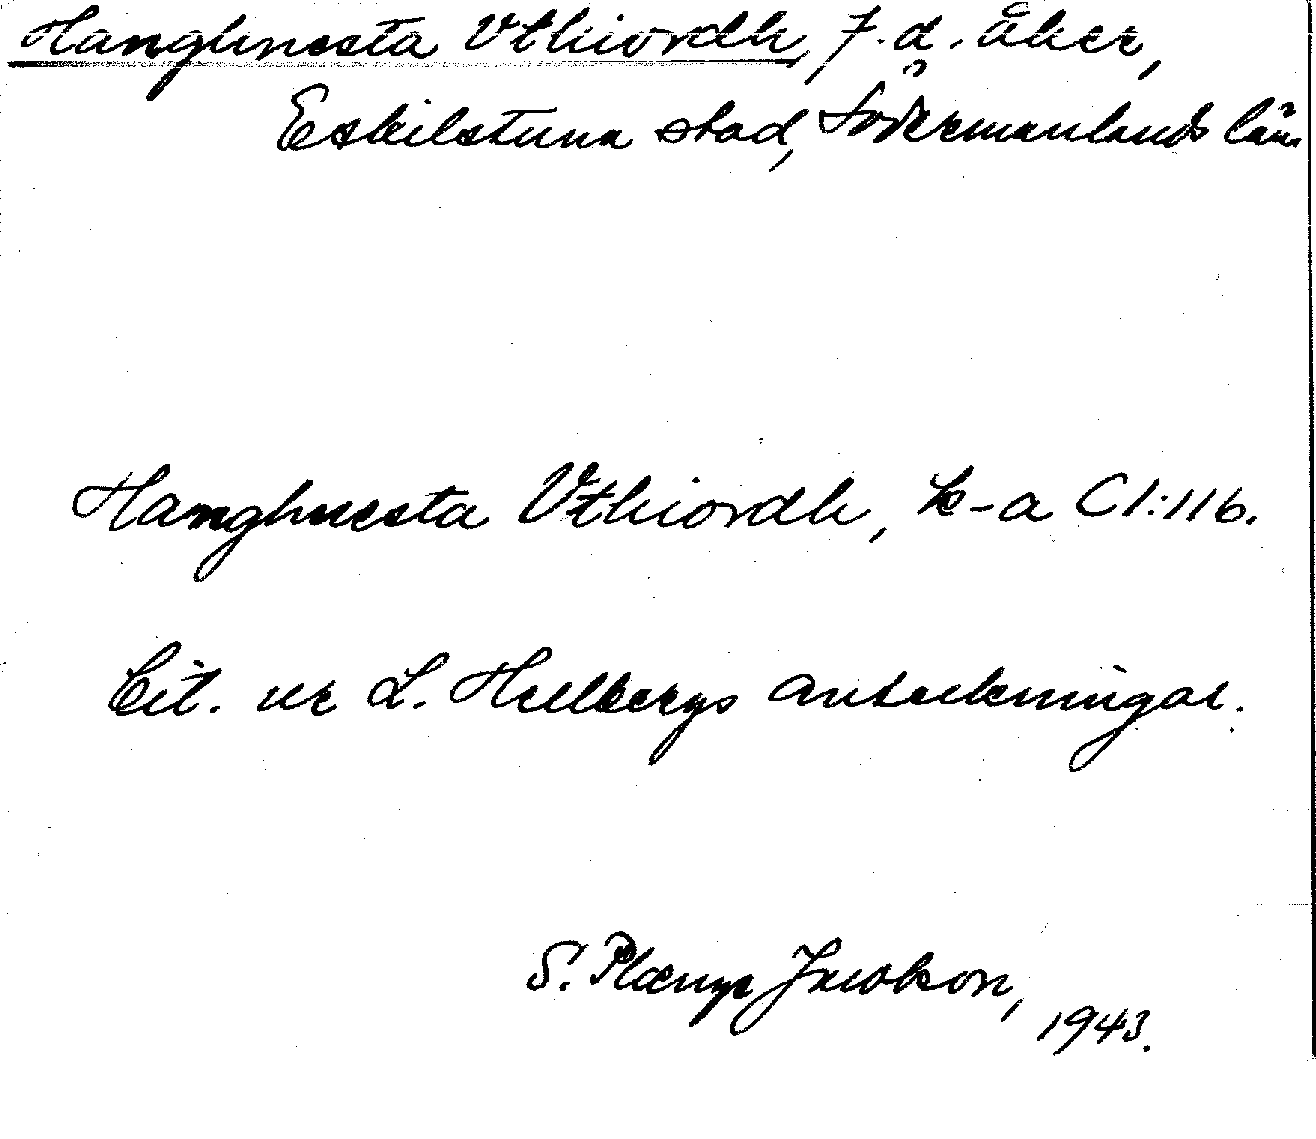 Hanghnesta Vthiordh, f.d. åker,
Eskilstuna stad, Södermanlands län
Hanghnesta Vthiordh, k-a C1:116.
Cit. ur L. Hellbergs anteckningar.
S. Jacobson,
1943.